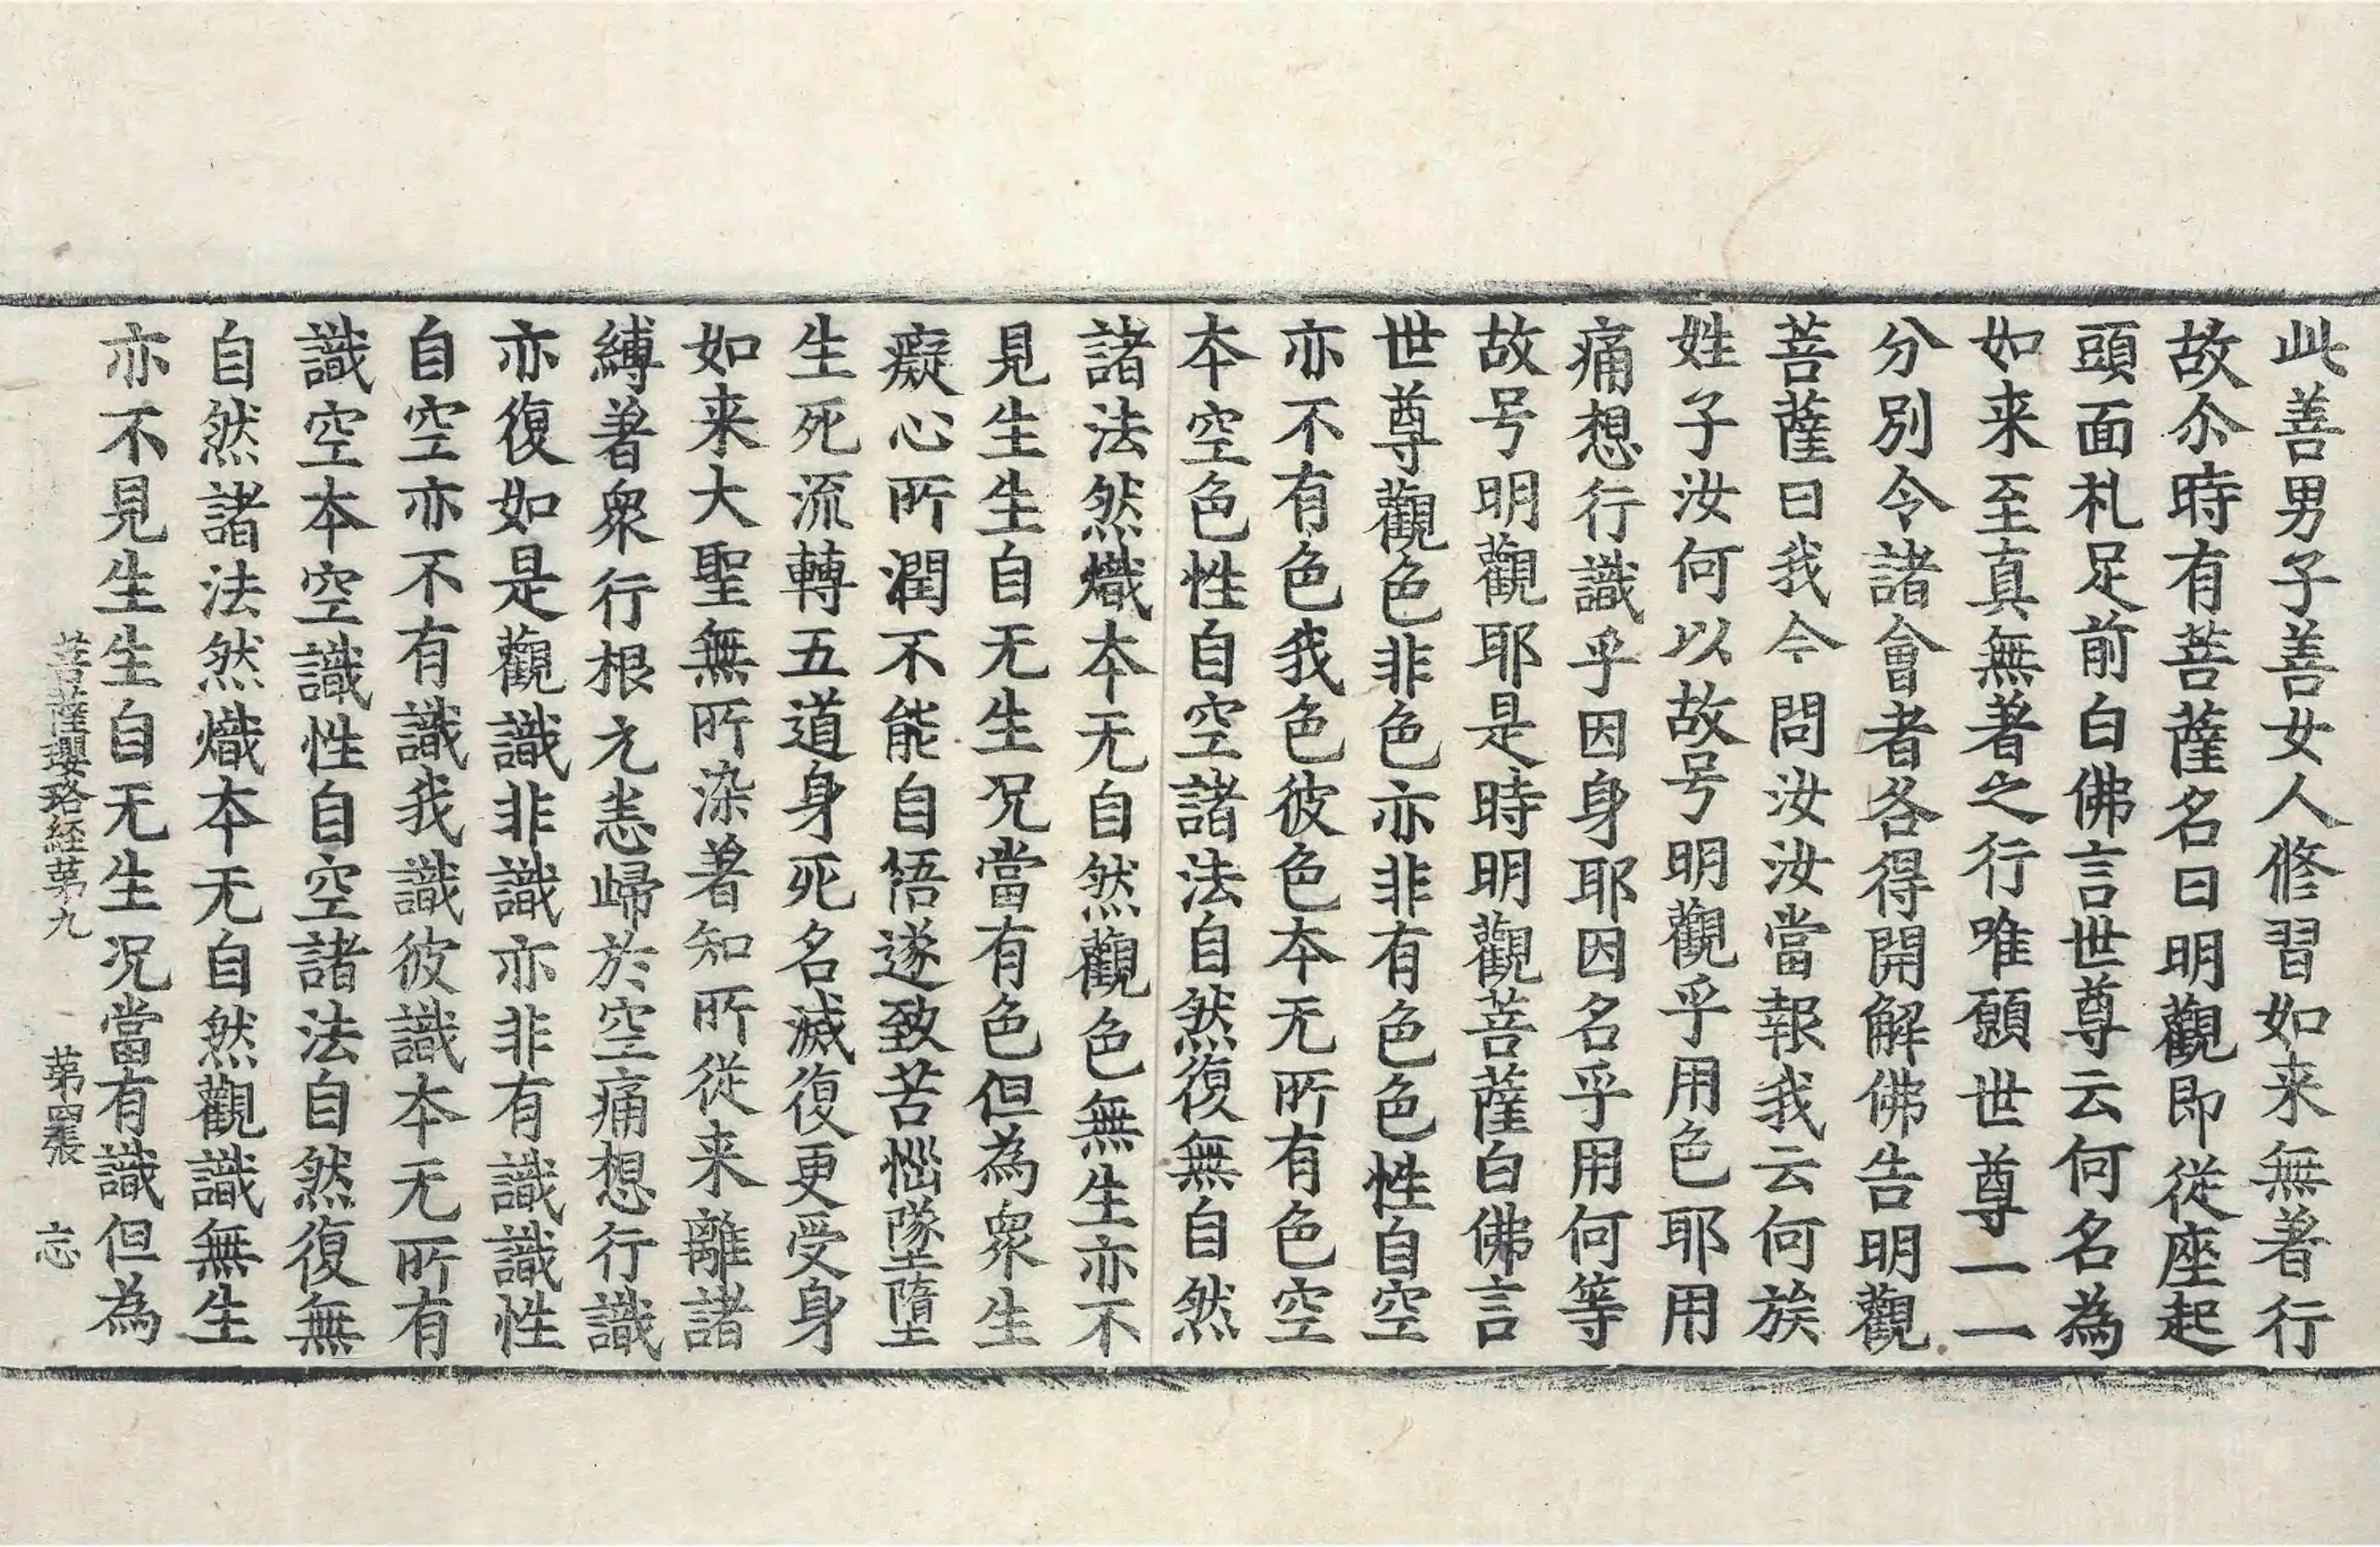 此善男子善女人修習如来無著行
故尒時有菩薩名曰明觀即從座起
頭面札足前白佛言世尊云何名為
如来至真無著之行唯願世尊一一
分別令諸會者各得開解佛告明觀
菩薩曰我今問汝汝當報我云何族
姓子汝何以故号明觀乎用色耶用
痛想行識乎因身耶因名乎用何等
故号明觀耶是時明觀菩薩白佛言
世尊觀色非色亦非有色色性自空
亦不有色我色彼色本无所有色空
本空色性自空諸法自然復無自然
諸法然熾本无自然觀色無生亦不
見生生自无生况當有色但為衆生
癡心所潤不能自悟遂致苦惱墜墮
生死流轉五道身死名滅復更受身
如来大聖無所染著知所從来離諸
縛著衆行根元恚歸於空痛想行識
亦復如是觀識非識亦非有識識性
自空亦不有識我識彼識本无所有
識空本空識性自空諸法自然復無
自然諸法然熾本无自然觀識無生
亦不見生生自无生况當有識但為
菩薩瓔珞経苐九　苐四張　忘